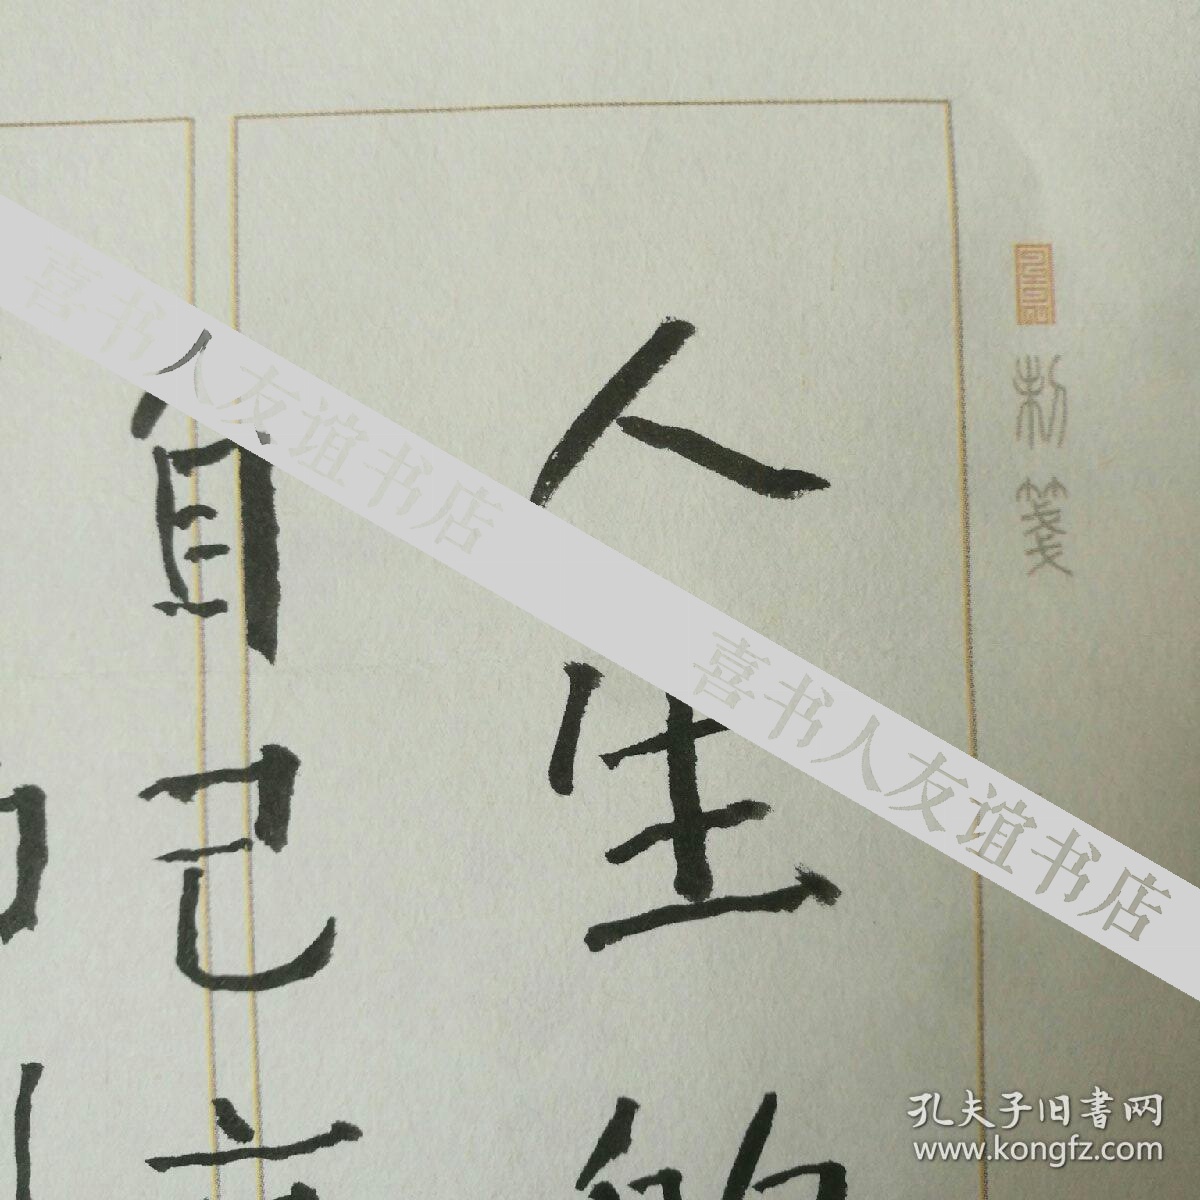 制笺
人生的
自己
喜书人友谊书店
喜书人友谊书店
孔夫子旧書网
www.kongfz.com